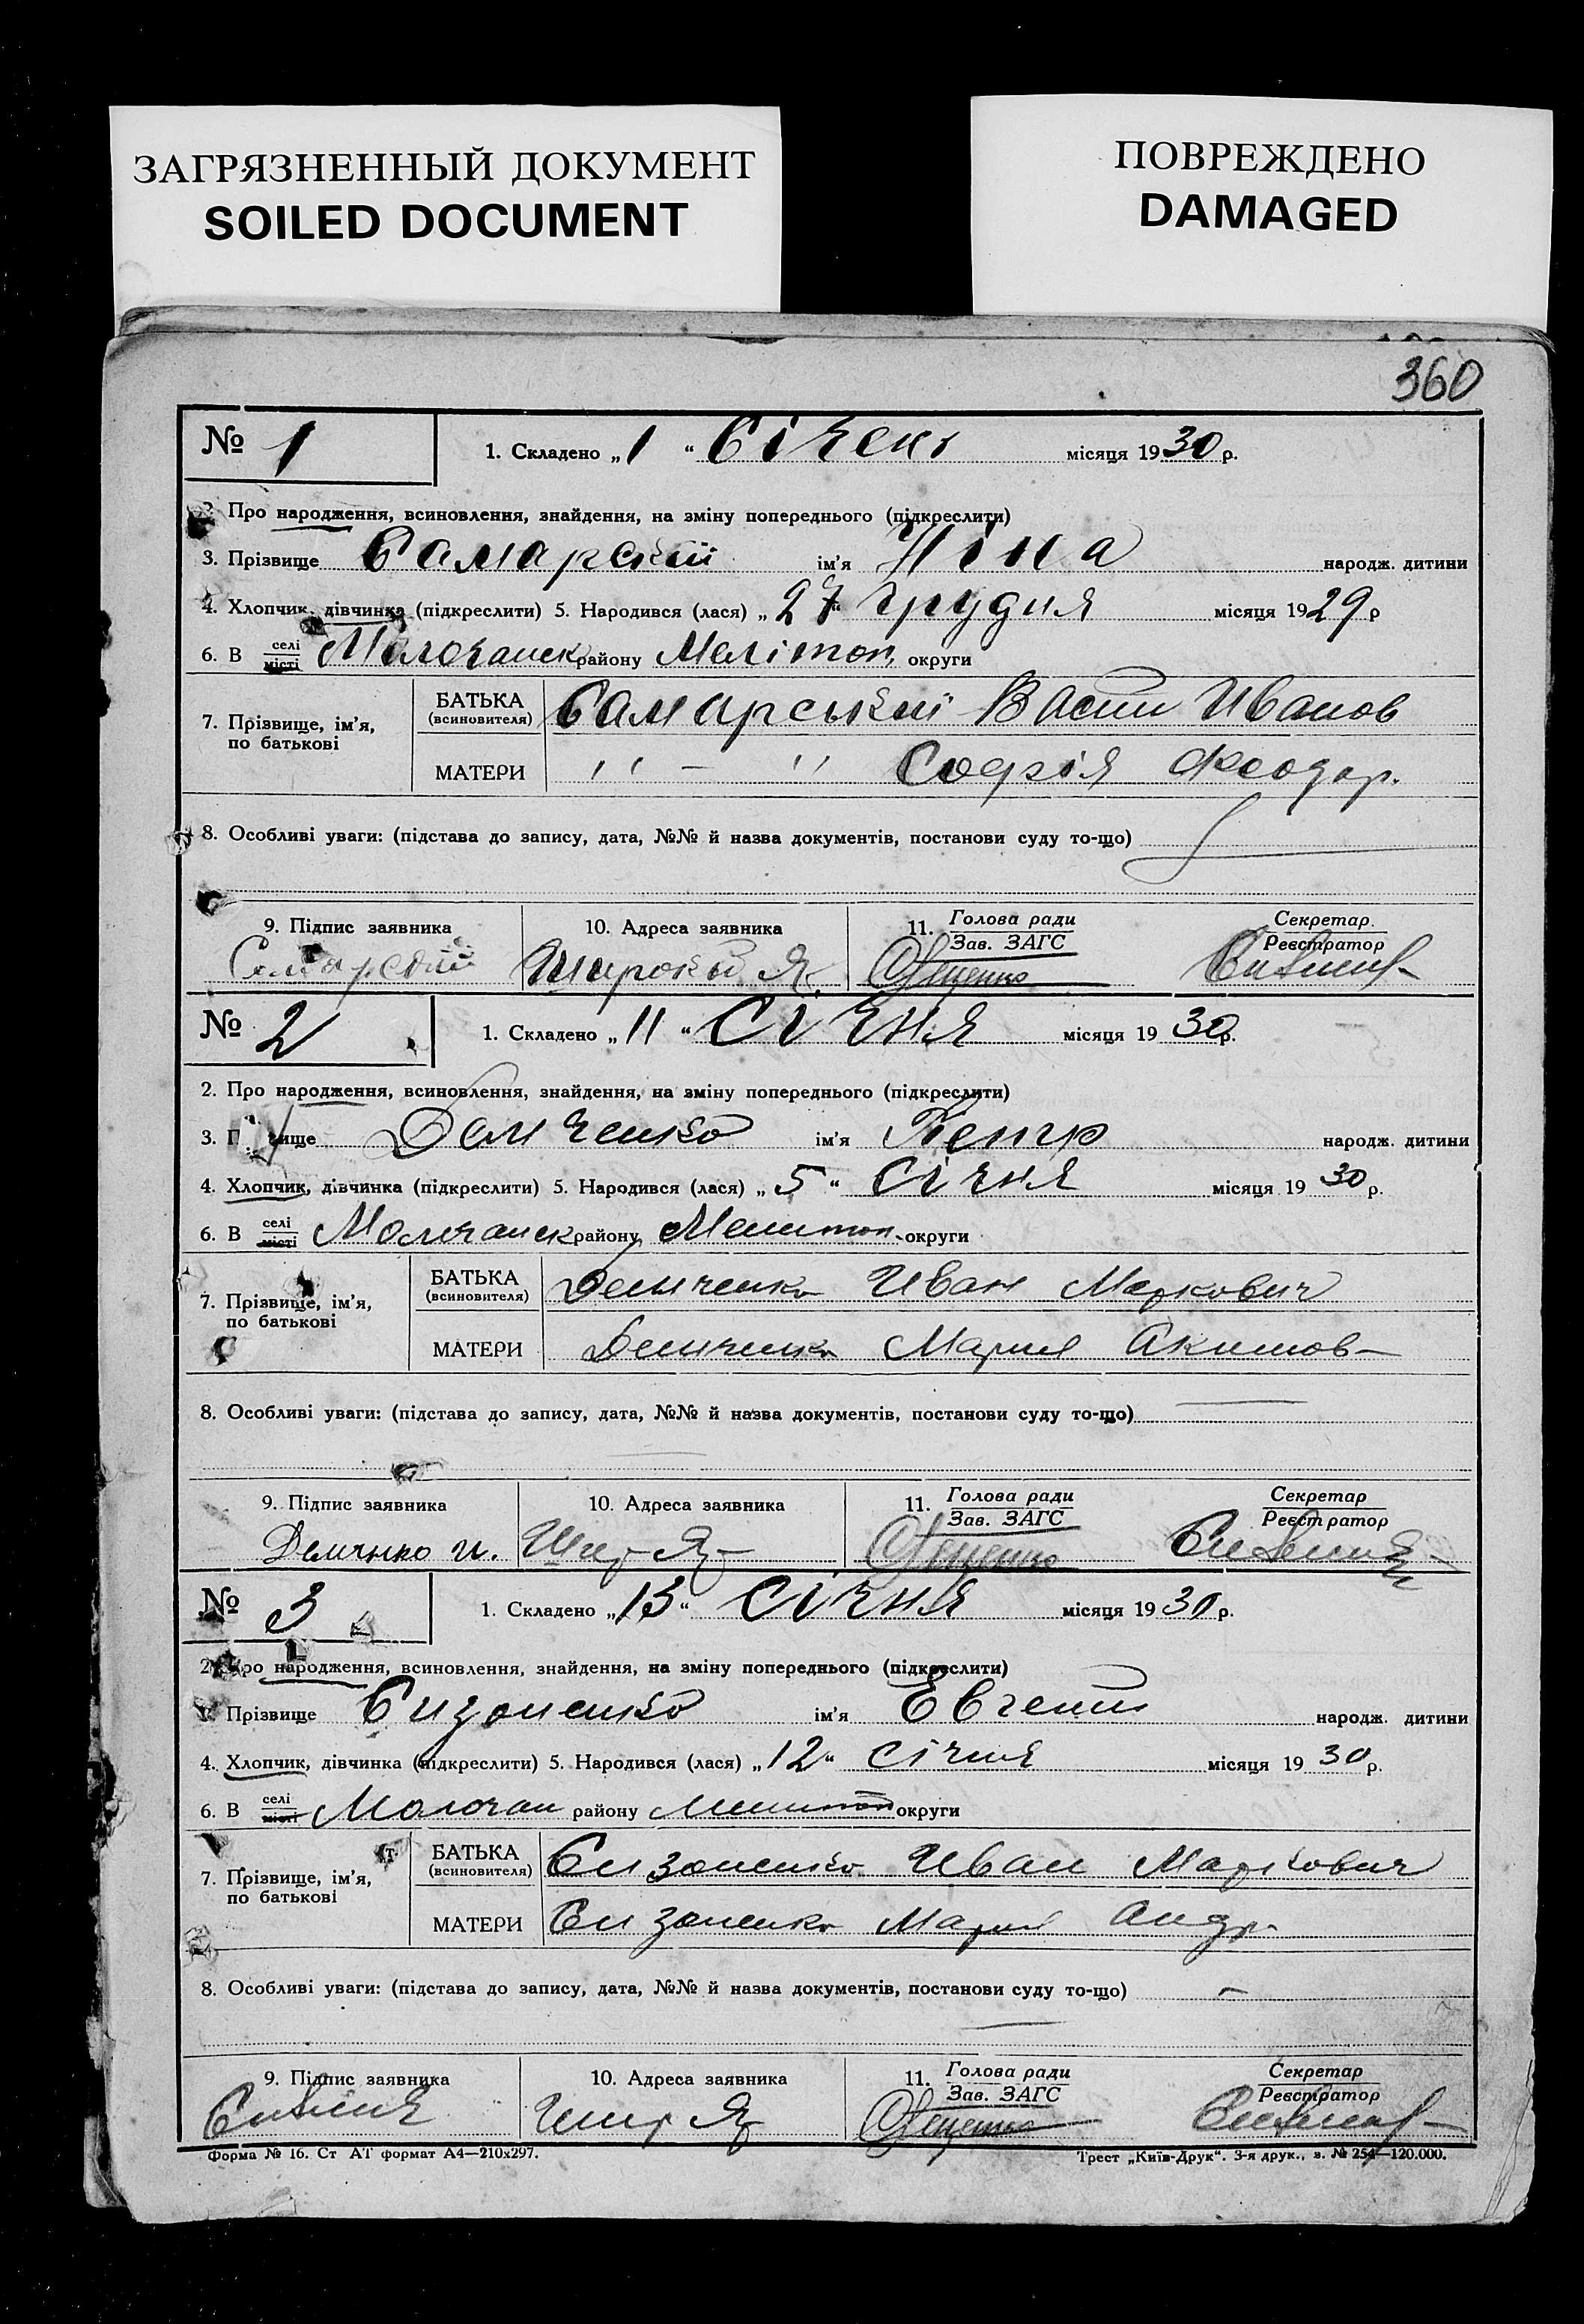 ЗАГРЯЗНЕННЫЙ ДОКУМЕНТ
SOILED DOCUMENT
ПОВРЕЖДЕНО
DAMAGED
360
№ 1
1. Складено „ 1 “ Січень місяця 1930 р.
Про народження, всиновлення, знайдення, на зміну попереднього (підкреслити)
3. Прізвище Самарский ім'я Ніна народж. дитини
4. Хлопчик, дівчинка (підкреслити) 5. Народився (лася) „ 27 “ грудня місяця 1929 р
6. В селі місті Молочанск району Мелітоп. округи
7. Прізвище, ім'я, по батькові
БАТЬКА (всиновителя) Самарський Иванов
МАТЕРИ " — " Софія Феодор.
8. Особливі уваги: (підстава до запису, дата, №№ й назва документів, постанови суду то-що)
9. Підпис заявника 10. Адреса заявника 11. Голова ради Зав. ЗАГС Секретар Реєстратор
Самарский Широкий Я.
№ 2
1. Складено „ 11 “ Січня місяця 1930 р.
2. Про народження, всиновлення, знайдення, на зміну попереднього (підкреслити)
3. П вище Демченко ім'я Петр народж. дитини
4. Хлопчик, дівчинка (підкреслити) 5. Народився (лася) „ 5 “ Січня місяця 1930 р.
6. В селі місті Молочанск району Мелитоп. округи
7. Прізвище, ім'я, по батькові
БАТЬКА (всиновителя) Демченко Иван Маркович
МАТЕРИ Демченко Мария Акимов—
8. Особливі уваги: (підстава до запису, дата, №№ й назва документів, постанови суду то-що)
9. Підпис заявника 10. Адреса заявника 11. Голова ради Зав. ЗАГС Секретар Реєстратор
Демченко И. Шир— Я—
№ 3
1. Складено „ 13 “ Січня місяця 1930 р.
2. Про народження, всиновлення, знайдення, на зміну попереднього (підкреслити)
Прізвище Сизоненко ім'я Евгений народж. дитини
4. Хлопчик, дівчинка (підкреслити) 5. Народився (лася) „ 12 “ Січня місяця 1930 р.
6. В селі місті Молочан району Мелитоп округи
7. Прізвище, ім'я, по батькові
БАТЬКА (всиновителя) Сизоненко Иван Маркович
МАТЕРИ Сизоненко Мария Андр.
8. Особливі уваги: (підстава до запису, дата, №№ й назва документів, постанови суду то-що) —
9. Підпис заявника 10. Адреса заявника 11. Голова ради Зав. ЗАГС Секретар Реєстратор
Шир Я
Форма № 16. Ст АТ формат А4—210х297.
Трест „Київ-Друк“. 3-я друк., з. № 254—120.000.